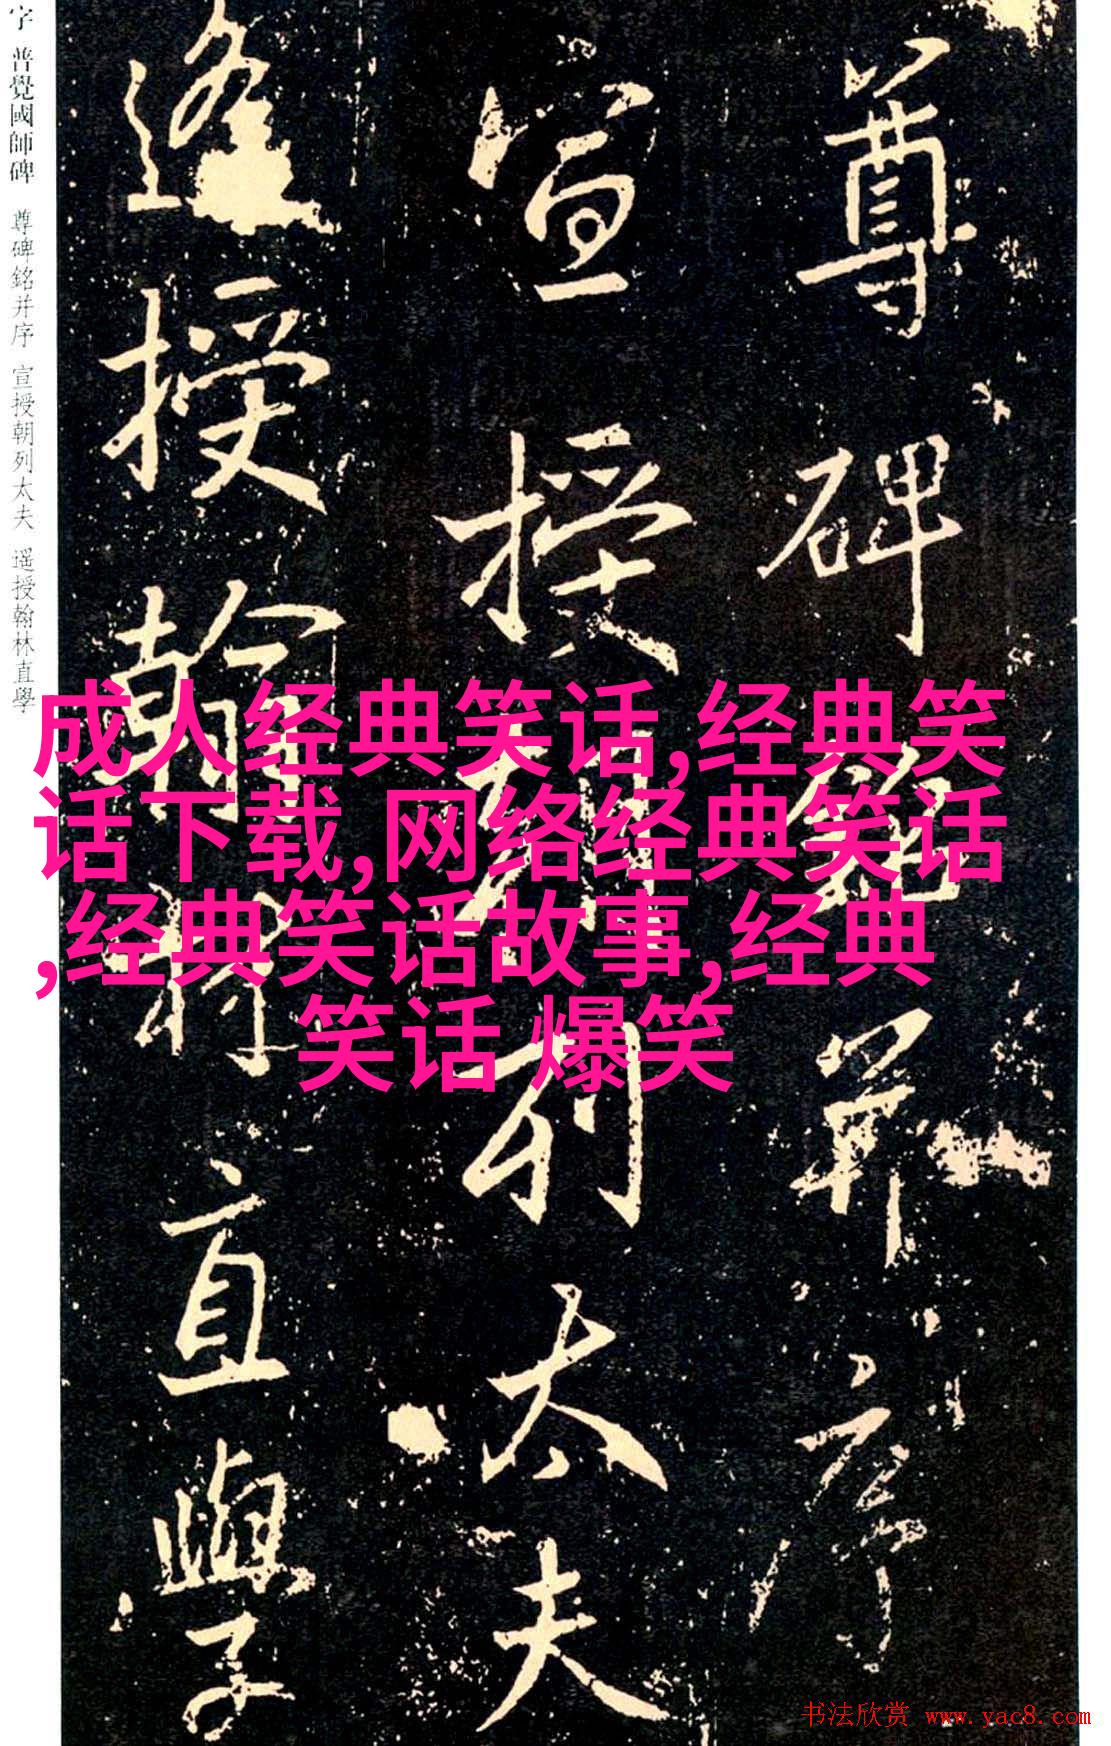 字 普覺國師碑 尊碑銘并序 宣授朝列太夫 遥授翰林直學
尊碑銘并序
宣授朝列太夫
遙授翰林直學
成人经典笑话,经典笑
话下载,网络经典笑话
,经典笑话故事,经典
笑话 爆笑
书法欣赏 www.yac8.com